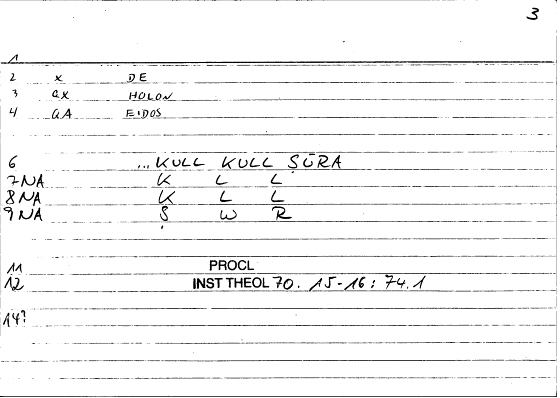 3
1
2 x DE
3 GX HOLON
4 GA EIDOS
6 ... KULL KULL ṢŪRA
7NA K L L
8NA K L L
9NA Ṣ W R
11 PROCL
12 INST THEOL 70. 15-16: 74.1
14?